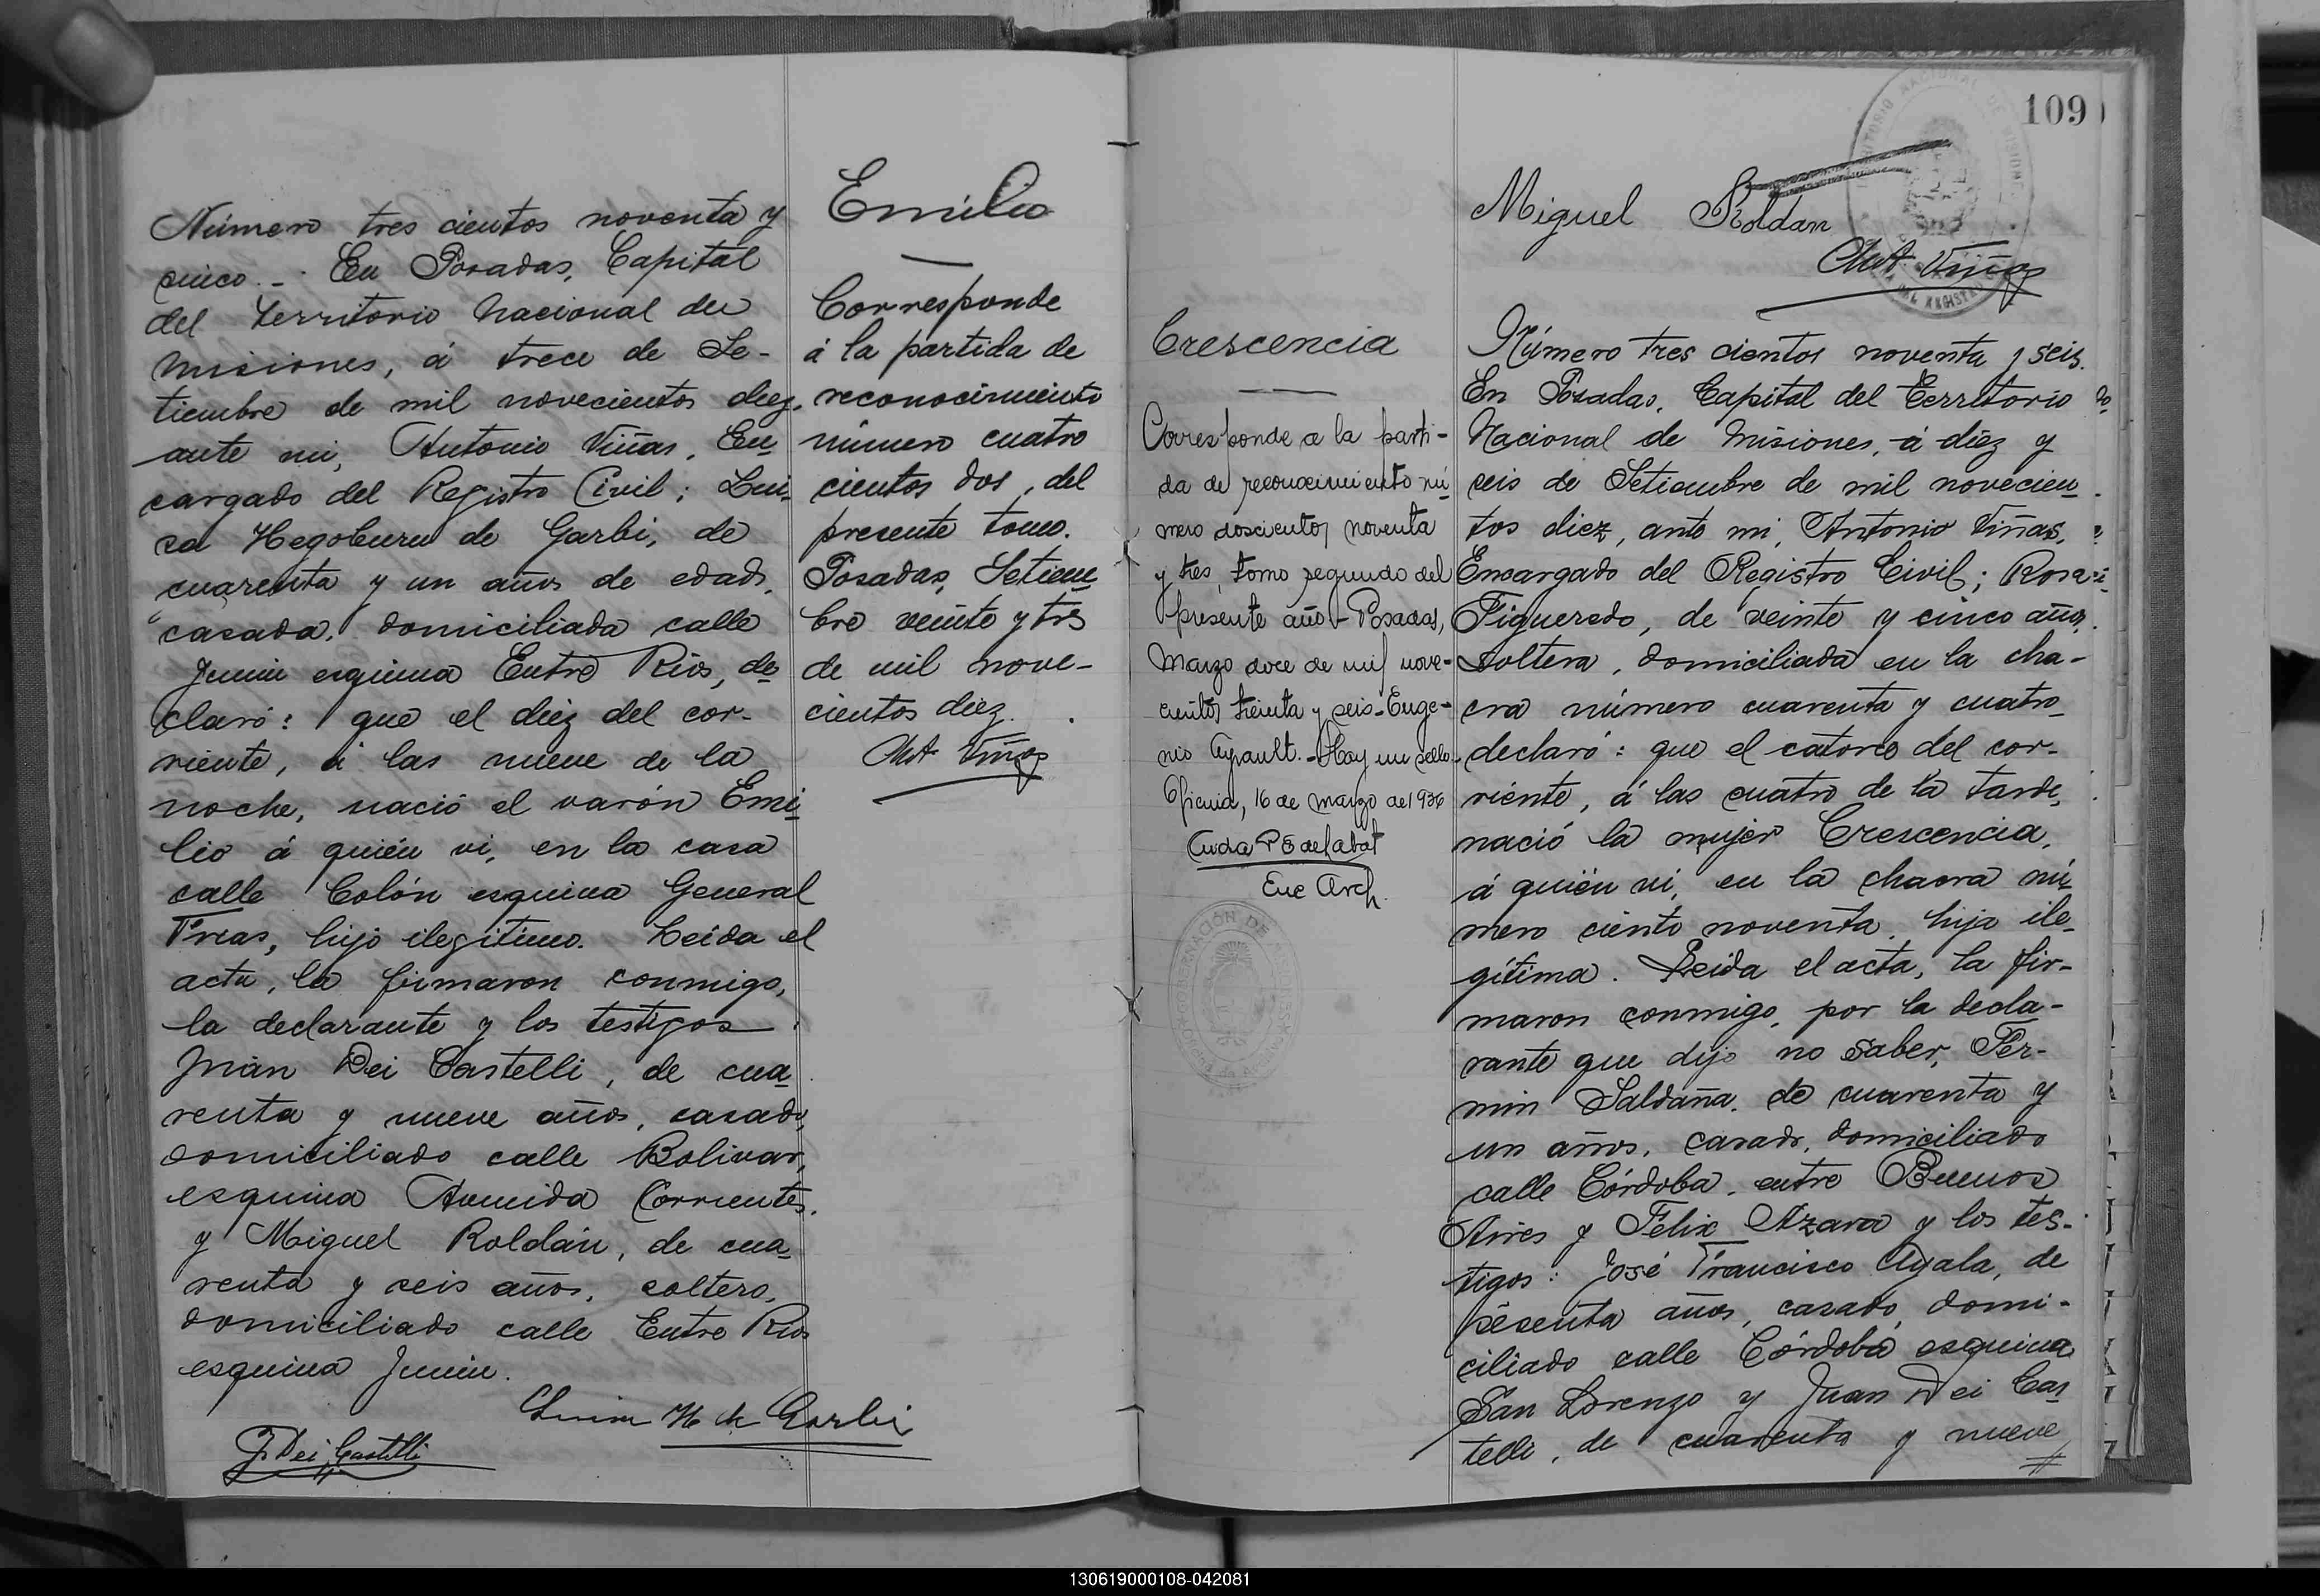 Número tres cientos noventa y
cinco.- En Posadas, Capital
del Territorio Nacional de
Misiones, á trece de Se-
tiembre de mil novecientos diez,
ante mi, Antonio Viñas, En
cargado del Registro Civil; Lui
sa Hegoburu de Garbi, de
cuarenta y un años de edad,
casada, domiciliada calle
Junin esquina Entre Rios, de
claró: que el diez del cor-
riente, á las nueve de la
noche, nació el varón Emi
lio á quién vi, en la casa
calle Colón esquina General
Frias, hijo ilegitimo. Leida el
acta, la firmaron conmigo,
la declarante y los testigos
Juan Dei Castelli, de cua
renta y nueve años, casado,
domiciliado calle Bolivar,
esquina Avenida Corrientes.
y Miguel Roldán, de cua
renta y seis años, soltero,
domiciliado calle Entre Rios
esquina Junin.
Luisa H de Garbi
J. Dei Castelli
Emilio
Corresponde
á la partida de
reconocimiento
número cuatro
cientos dos, del
presente tomo.
Posadas, Setiem
bre veinte y tres
de mil nove-
cientos diez.
Ant Viñas
109
Miguel Roldan
Ant Viñas
Crescencia
Corresponde a la parti-
da de reconocimiento nú
mero doscientos noventa
y tres, tomo segundo del
presente año - Posadas,
Marzo doce de mil nove-
cientos treinta y seis - Euge-
nio Ayrault. - Hay un sello.
Oficina, 16 de marzo de 1936
Enc Arch.
Número tres cientos noventa y seis.
En Posadas, Capital del Territorio
Nacional de Misiones, á diez y
seis de Setiembre de mil novecien
tos diez, ante mi, Antonio Viñas,
Encargado del Registro Civil; Rosa
Figueredo, de veinte y cinco años,
soltera, domiciliada en la cha-
cra número cuarenta y cuatro
declaró: que el catorce del cor-
riente, á las cuatro de la tarde,
nació la mujer Crescencia,
á quién vi, en la chacra nú
mero ciento noventa, hija ile
gítima. Leida el acta, la fir-
maron conmigo, por la decla-
rante que dijo no saber, Fer-
min Saldaña, de cuarenta y
un años, casado, domiciliado
calle Córdoba, entre Buenos
Aires y Felix Azara y los tes-
tigos: José Francisco Ayala, de
sesenta años, casado, domi-
ciliado calle Córdoba esquina
San Lorenzo y Juan Dei Cas
telli, de cuarenta y nueve
130619000108-042081